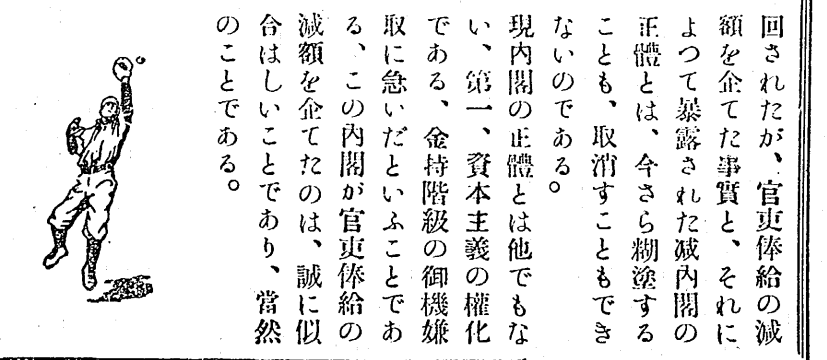 回されたが、官吏俸給の減
額を企てた事實と、それに
よつて暴露された減內閣の
正體とは、今さら糊塗する
ことも、取消すこともでき
ないのである。
現內閣の正體とは他でもな
い、第一、資本主義の權化
である、金持階級の御機嫌
取に急いだといふことであ
る、この內閣が官吏俸給の
減額を企てたのは、誠に似
合はしいことであり、當然
のことである。